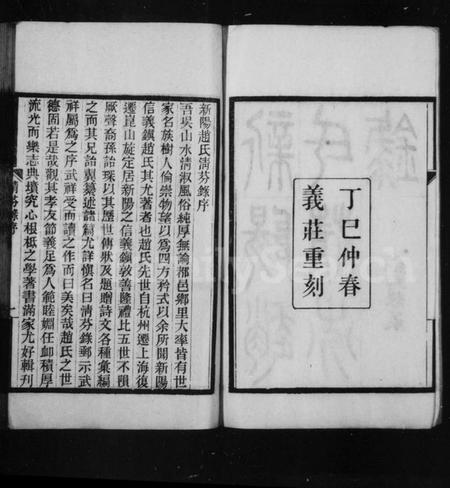 丁巳仲春
義莊重刻
新陽趙氏清芬錄序
吾吳山水清淑風俗純厚無論都邑鄉里大率皆有世
家名族人倫崇物望以爲四方矜式以余所聞新陽
信義鎮趙氏其尤著者也趙氏先世自杭州遷上海復
遷崑山旋定居新陽之信義鎮敦善隆禮比五世不隕
厥聲裔孫詒琛以其歷世傳狀及題贈詩文各種彙編
之而其兄詒翼纂述譜篇尤詳愼名曰清芬錄郵示武
祥屬爲之序武祥受而讀之作而曰美矣哉趙氏之世
德固若是哉觀其孝友節義足爲人範睦婣任卹積厚
流光而樂志典墳究心根柢之學著書滿家尤好輯刊
清芬錄序
一